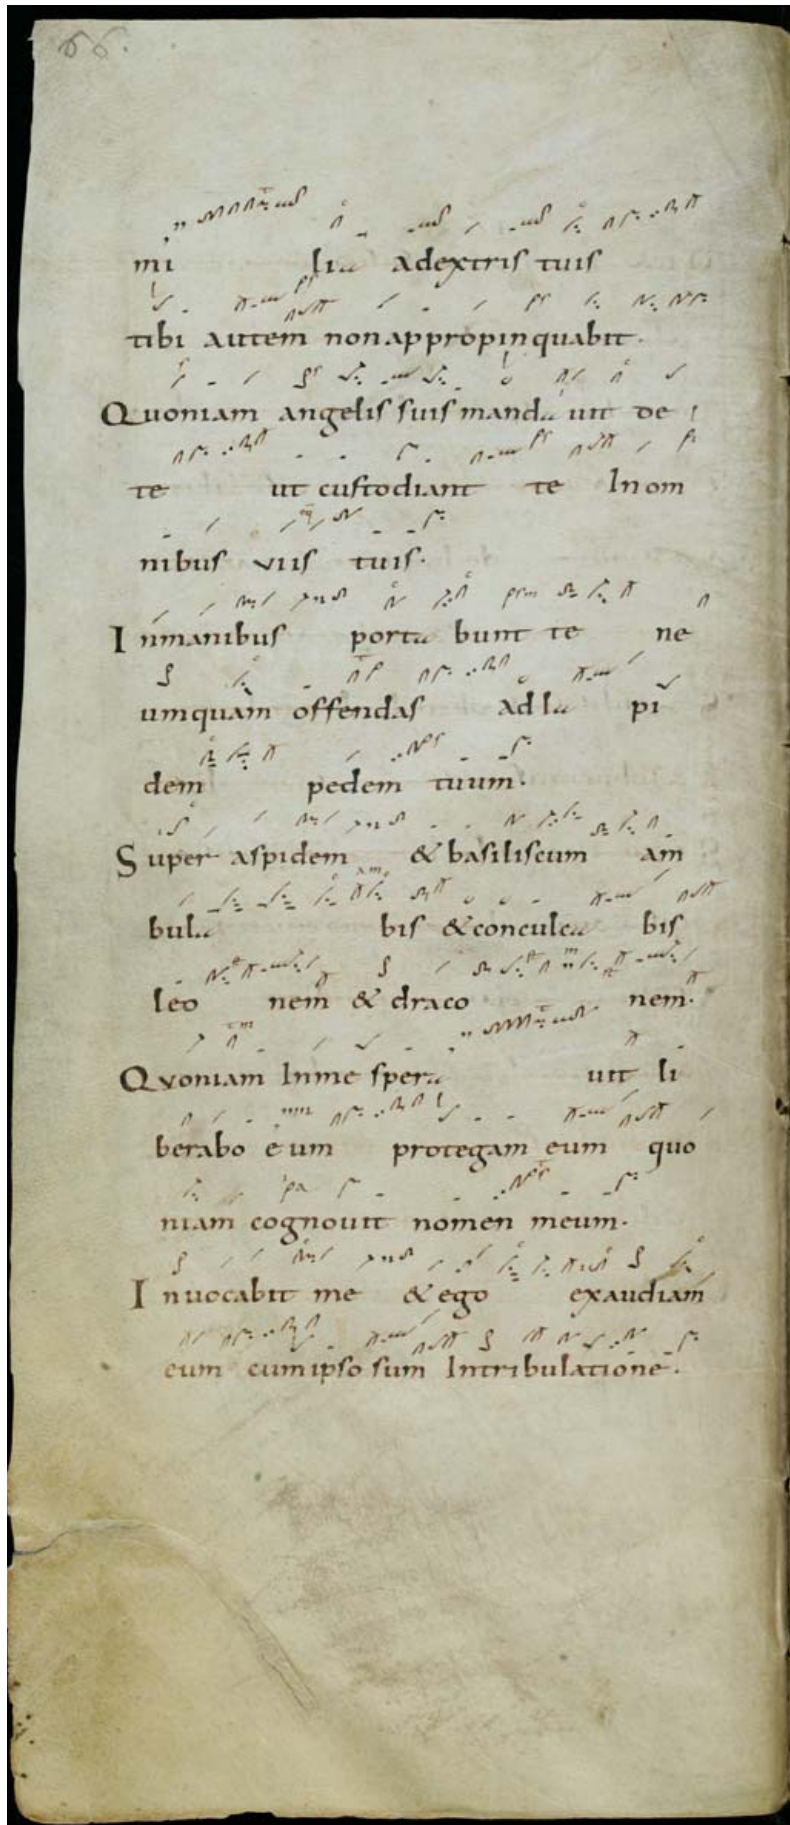 66.
mi lia adextris tuis
tibi autem non appropinquabit.
Quoniam angelis suis manda uit de
te ut custodiant te In om
nibus viis tuis.
In manibus porta bunt te ne
umquam offendas ad la pi
dem pedem tuum.
Super aspidem & basiliscum am
bula bis & conculca bis
leo nem & draco nem.
Quoniam In me spera uit li
berabo eum protegam eum quo
niam cognouit nomen meum.
Inuocabit me & ego exaudiam
eum cum ipso sum In tribulatione.